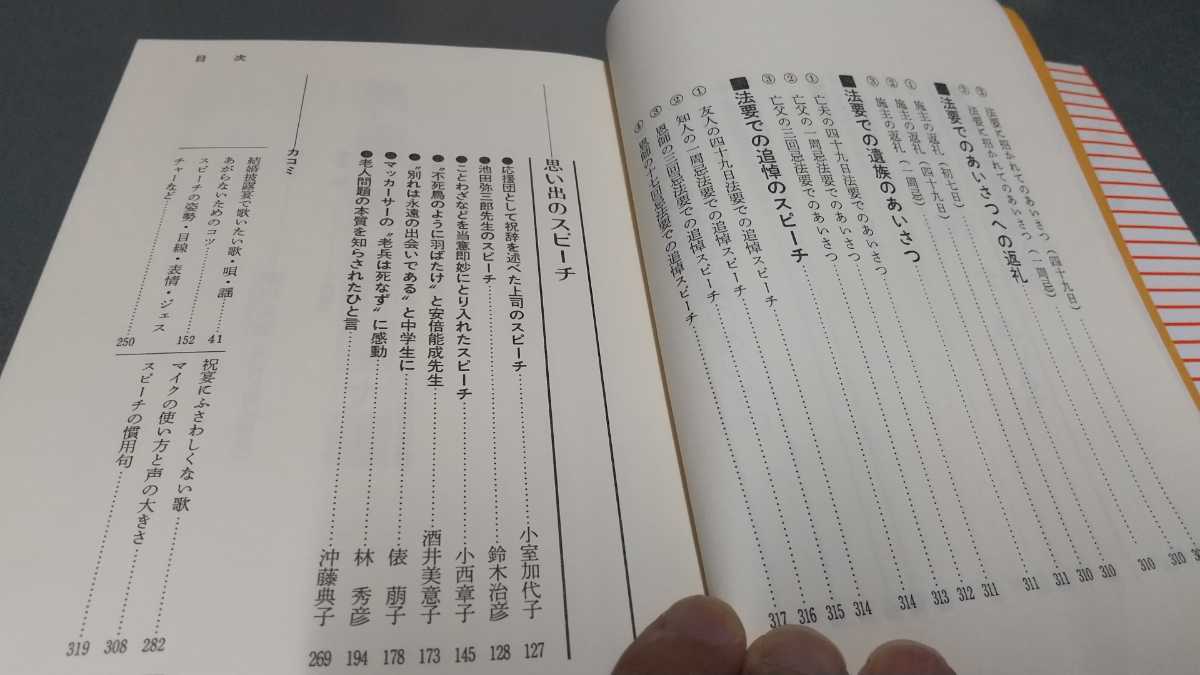 ② 法要に招かれてのあいさつ（四十九日）
③ 法要に招かれてのあいさつ（一周忌）……310
■法要でのあいさつへの返礼……310
① 施主の返礼（初七日）……310
② 施主の返礼（四十九日）……310
③ 施主の返礼（一周忌）……311
■法要での遺族のあいさつ……311
① 亡夫の四十九日法要でのあいさつ……311
② 亡父の一周忌法要でのあいさつ……312
③ 亡父の三回忌法要でのあいさつ……313
■法要での追悼のスピーチ……314
① 友人の四十九日法要での追悼スピーチ……314
② 知人の一周忌法要での追悼スピーチ……315
③ 恩師の三回忌法要での追悼スピーチ……316
④ 恩師の十七回忌法要での追悼スピーチ……317
目次
思い出のスピーチ
●応援団として祝辞を述べた上司のスピーチ……小室加代子 127
●池田弥三郎先生のスピーチ……鈴木治彦 128
●ことわざなどを当意即妙にとり入れたスピーチ……小西章子 145
●“不死鳥のように羽ばたけ”と安倍能成先生……酒井美意子 173
●“別れは永遠の出会いである”と中学生に……俵 萠子 178
●マッカーサーの“老兵は死なず”に感動……林 秀彦 194
●老人問題の本質を知らされたひと言……沖藤典子 269
カコミ
結婚披露宴で歌いたい歌・唄・謡……41
あがらないためのコツ……152
スピーチの姿勢・目線・表情・ジェス
チャーなど……250
祝宴にふさわしくない歌……282
マイクの使い方と声の大きさ……308
スピーチの慣用句……319